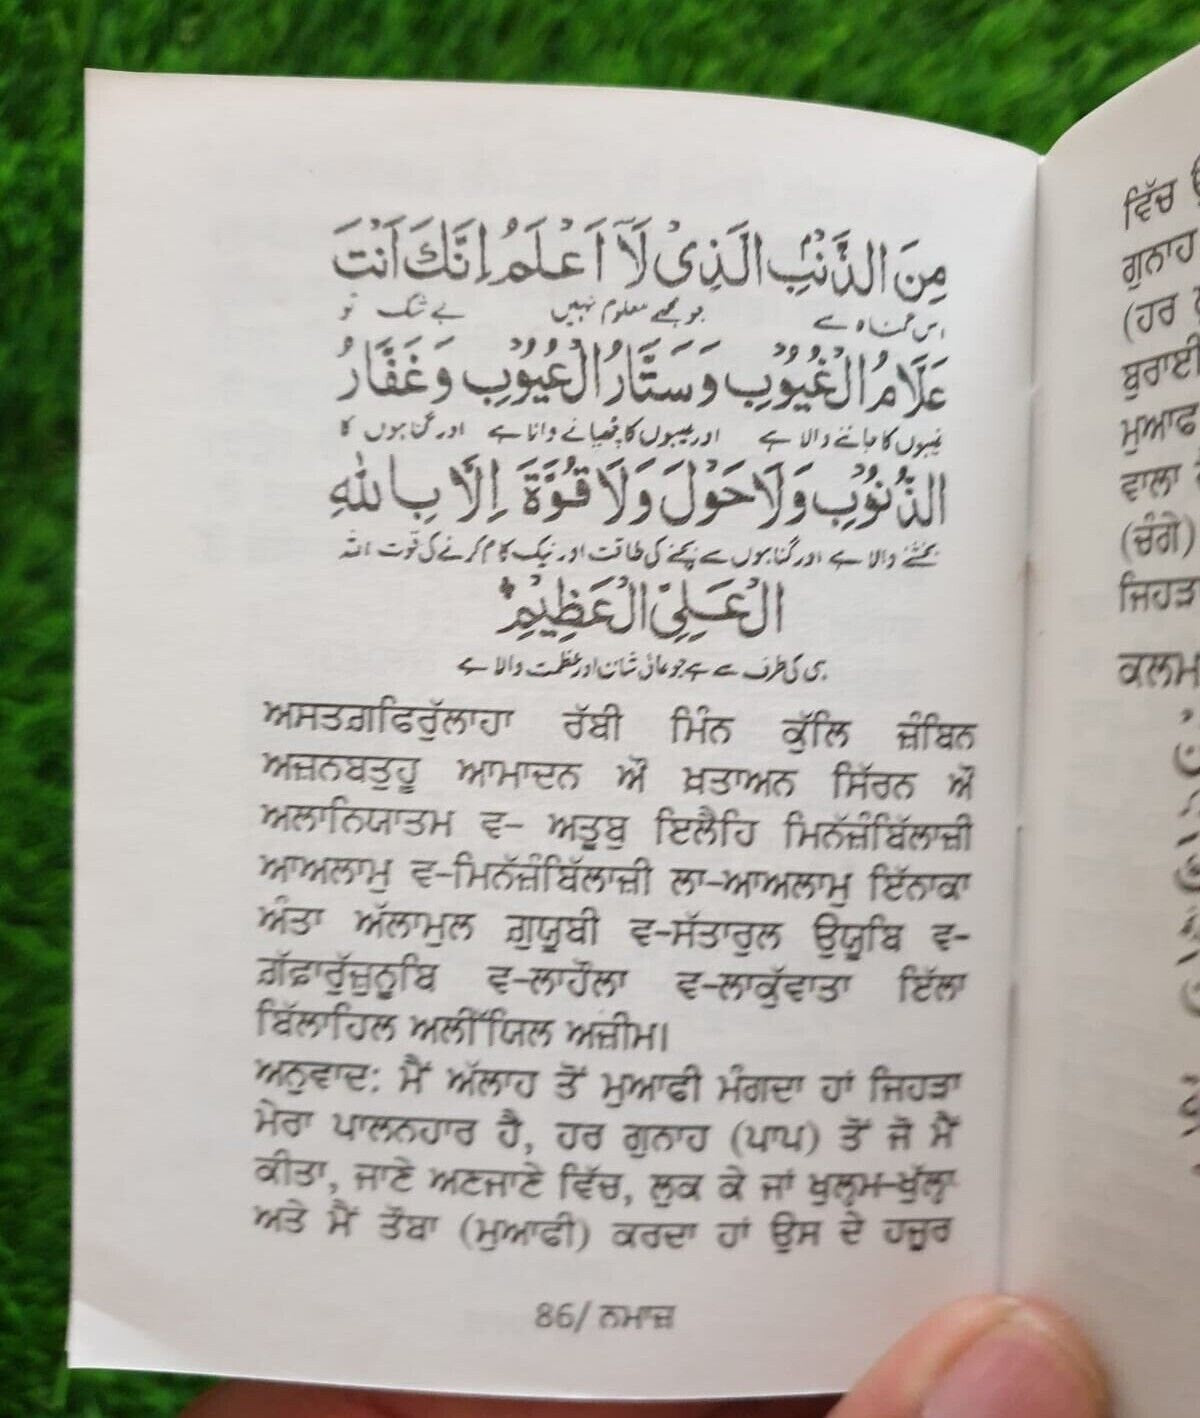 مِنَ الذَّنْبِ الَّذِیْ لَآ اَعْلَمُ اِنَّكَ اَنْتَ
اس گناہ سے جو مجھے معلوم نہیں بے شک تو
عَلَّامُ الْغُيُوْبِ وَسَتَّارُ الْعُيُوْبِ وَغَفَّارُ
غیبوں کا جاننے والا ہے اور عیبوں کا چھپانے والا ہے اور گناہوں کا
الذُّنُوْبِ وَلَا حَوْلَ وَلَا قُوَّةَ اِلَّا بِاللّٰهِ
بخشنے والا ہے اور گناہوں سے بچنے کی طاقت اور نیک کام کرنے کی قوت اللہ
الْعَلِیِّ الْعَظِيْمِ
ہی کی طرف سے ہے جو عالی شان اور عظمت والا ہے
ਅਸਤਗ਼ਫਿਰੁੱਲਾਹਾ ਰੱਬੀ ਮਿੰਨ ਕੁੱਲਿ ਜ਼ੰਬਿਨ
ਅਜ਼ਨਬਤੁਹੂ ਆਮਾਦਨ ਔ ਖ਼ਤਾਅਨ ਸਿੱਰਨ ਔ
ਅਲਾਨਿਯਾਤਮ ਵ- ਅਤੂਬੁ ਇਲੈਹਿ ਮਿਨੱਜ਼ੰਬਿੱਲਾਜ਼ੀ
ਆਅਲਾਮੁ ਵ-ਮਿਨੱਜ਼ੰਬਿੱਲਾਜ਼ੀ ਲਾ-ਆਅਲਾਮੁ ਇੱਨਾਕਾ
ਅੰਤਾ ਅੱਲਾਮੁਲ ਗ਼ੁਯੂਬੀ ਵ-ਸੱਤਾਰੁਲ ਉਯੂਬਿ ਵ-
ਗ਼ੱਫ਼ਾਰੁੱਜ਼ੁਨੂਬਿ ਵ-ਲਾਹੌਲਾ ਵ-ਲਾਕੁੱਵਾਤਾ ਇੱਲਾ
ਬਿੱਲਾਹਿਲ ਅਲੀੱਯਿਲ ਅਜ਼ੀਮ।
ਅਨੁਵਾਦ: ਮੈਂ ਅੱਲਾਹ ਤੋਂ ਮੁਆਫੀ ਮੰਗਦਾ ਹਾਂ ਜਿਹੜਾ
ਮੇਰਾ ਪਾਲਨਹਾਰ ਹੈ, ਹਰ ਗੁਨਾਹ (ਪਾਪ) ਤੋਂ ਜੋ ਮੈਂ
ਕੀਤਾ, ਜਾਣੇ ਅਣਜਾਣੇ ਵਿੱਚ, ਲੁਕ ਕੇ ਜਾਂ ਖੁਲ੍ਹਮ-ਖੁੱਲ੍ਹਾ
ਅਤੇ ਮੈਂ ਤੌਬਾ (ਮੁਆਫੀ) ਕਰਦਾ ਹਾਂ ਉਸ ਦੇ ਹਜ਼ੂਰ
86/ ਨਮਾਜ਼
ਵਿੱਚ
ਗੁਨਾਹ
(ਹਰ
ਬੁਰਾਈ
ਮੁਆਫ
ਵਾਲਾ
(ਚੰਗੇ)
ਜਿਹੜਾ